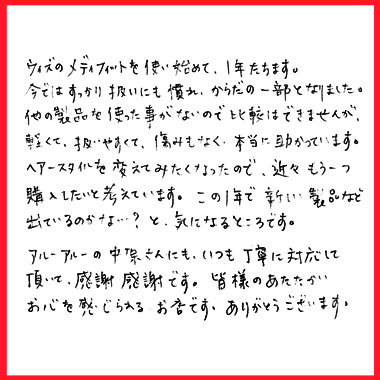 ウィズのメディフィットを使い始めて、1年たちます。
今ではすっかり扱いにも慣れ、からだの一部となりました。
他の製品を使った事がないので比較はできませんが、
軽くて、扱いやすくて、傷みもなく、本当に助かっています。
ヘアースタイルを変えてみたくなったので、近々もう一つ
購入したいと考えています。この1年で新しい製品など
出ているのかな?と、気になるところです。
アルーアルーの中塚さんにも、いつも丁寧に対応して
頂いて、感謝感謝です。皆様のあたたかい
お心を感じられるお店です。ありがとうございます。